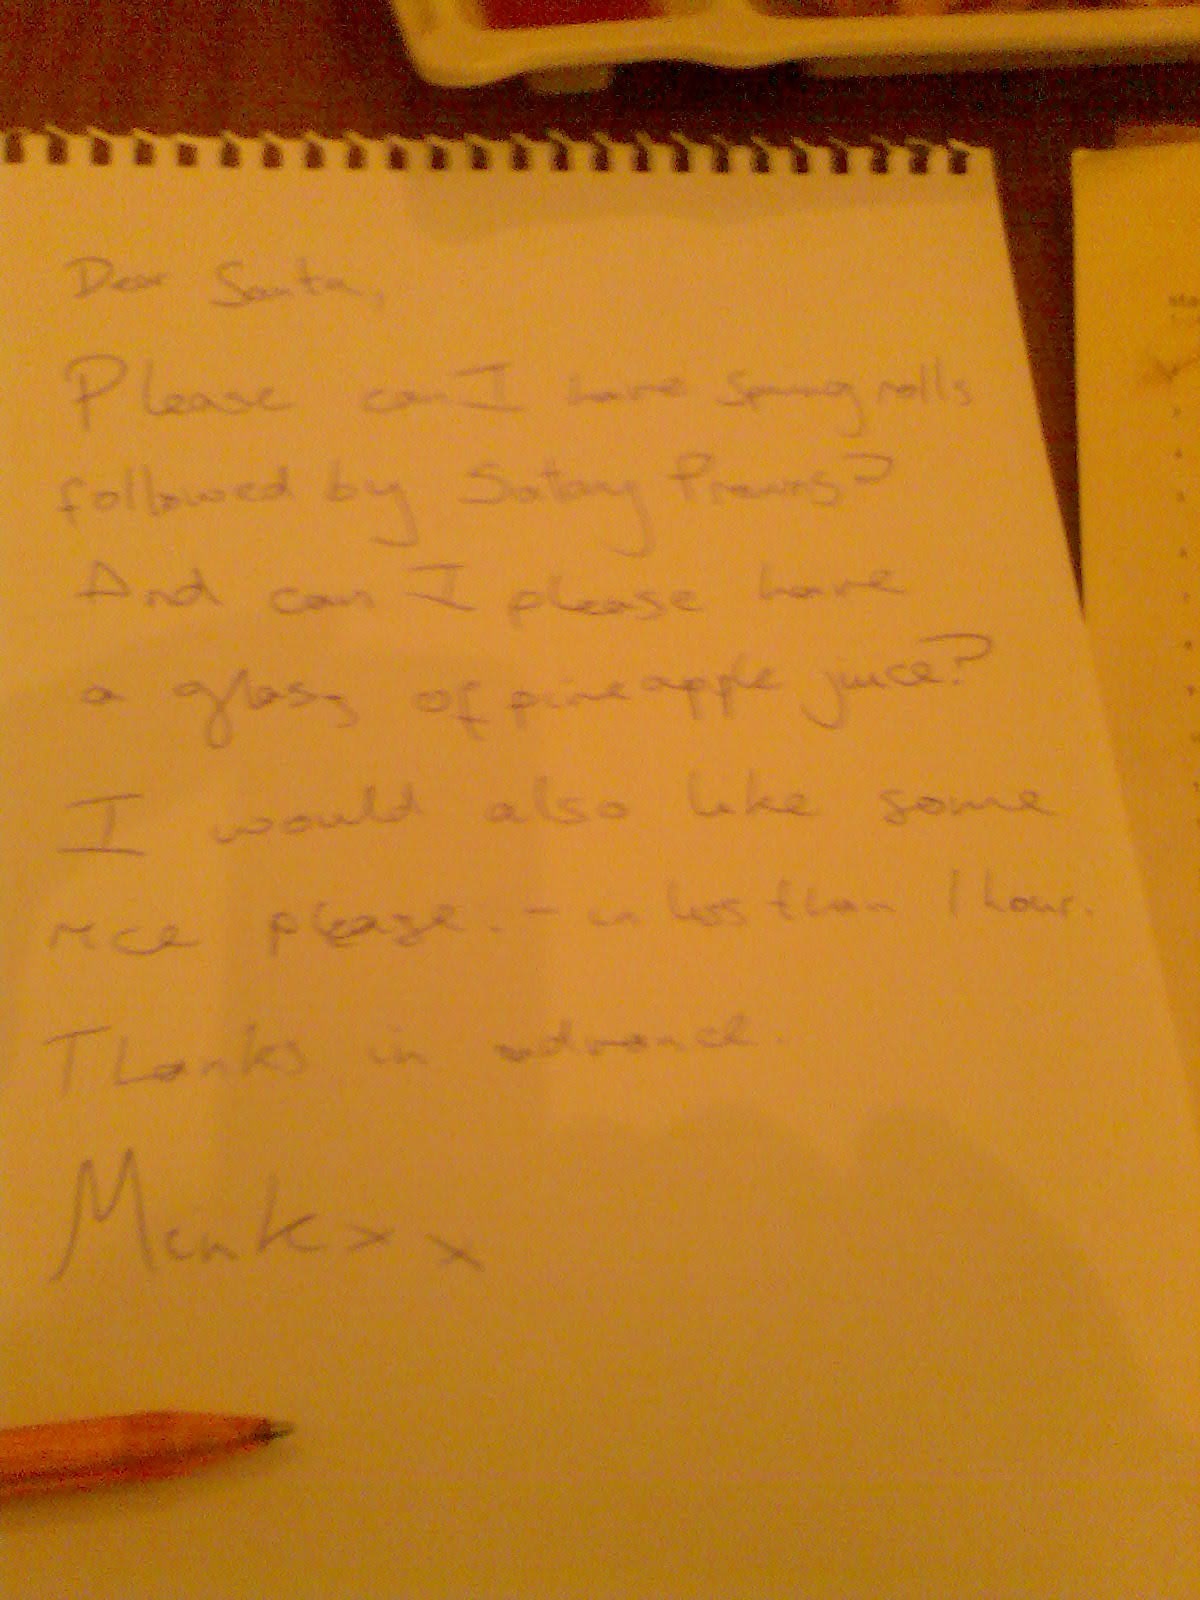 Dear Santa,
Please can I have Spring rolls
followed by Satay Prawns?
And can I please have
a glass of pineapple juice?
I would also like some
rice please. - in less than 1 hour.
Thanks in advance.
Mink x x